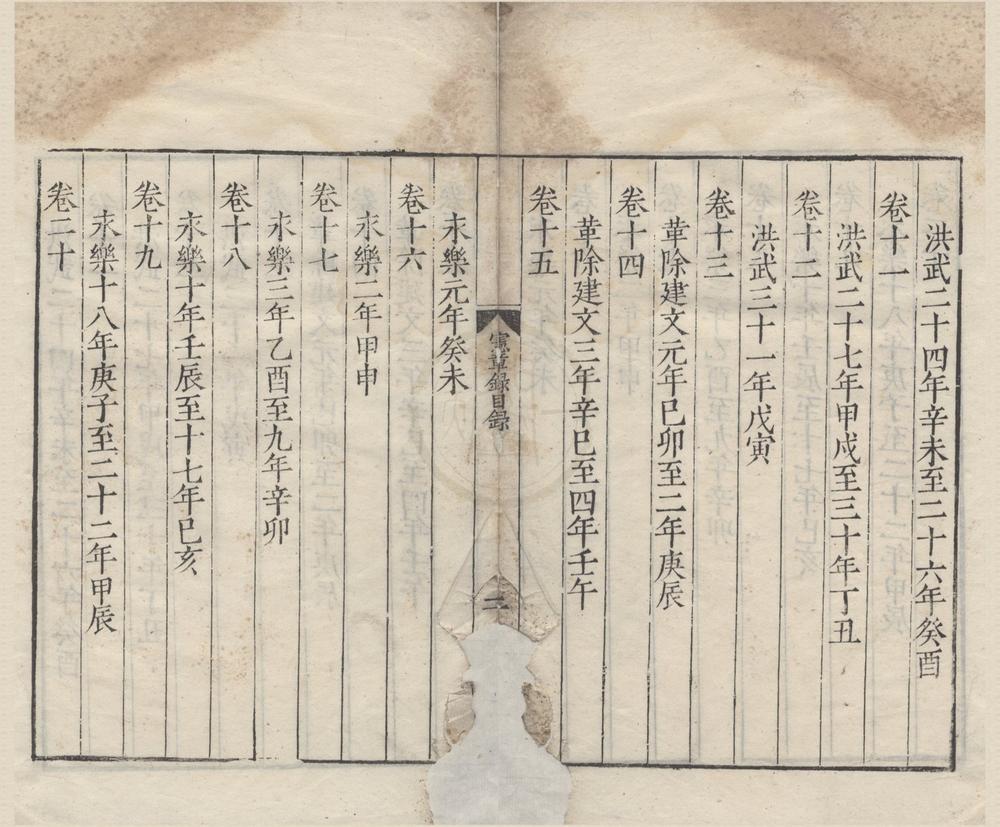 洪武二十四年辛未至二十六年癸酉
卷十一
洪武二十七年甲戌至三十年丁丑
卷十二
洪武三十一年戊寅
卷十三
革除建文元年己卯至二年庚辰
卷十四
革除建文三年辛巳至四年壬午
卷十五
憲章錄目錄
二
永樂元年癸未
卷十六
永樂二年甲申
卷十七
永樂三年乙酉至九年辛卯
卷十八
永樂十年壬辰至十七年己亥
卷十九
永樂十八年庚子至二十二年甲辰
卷二十